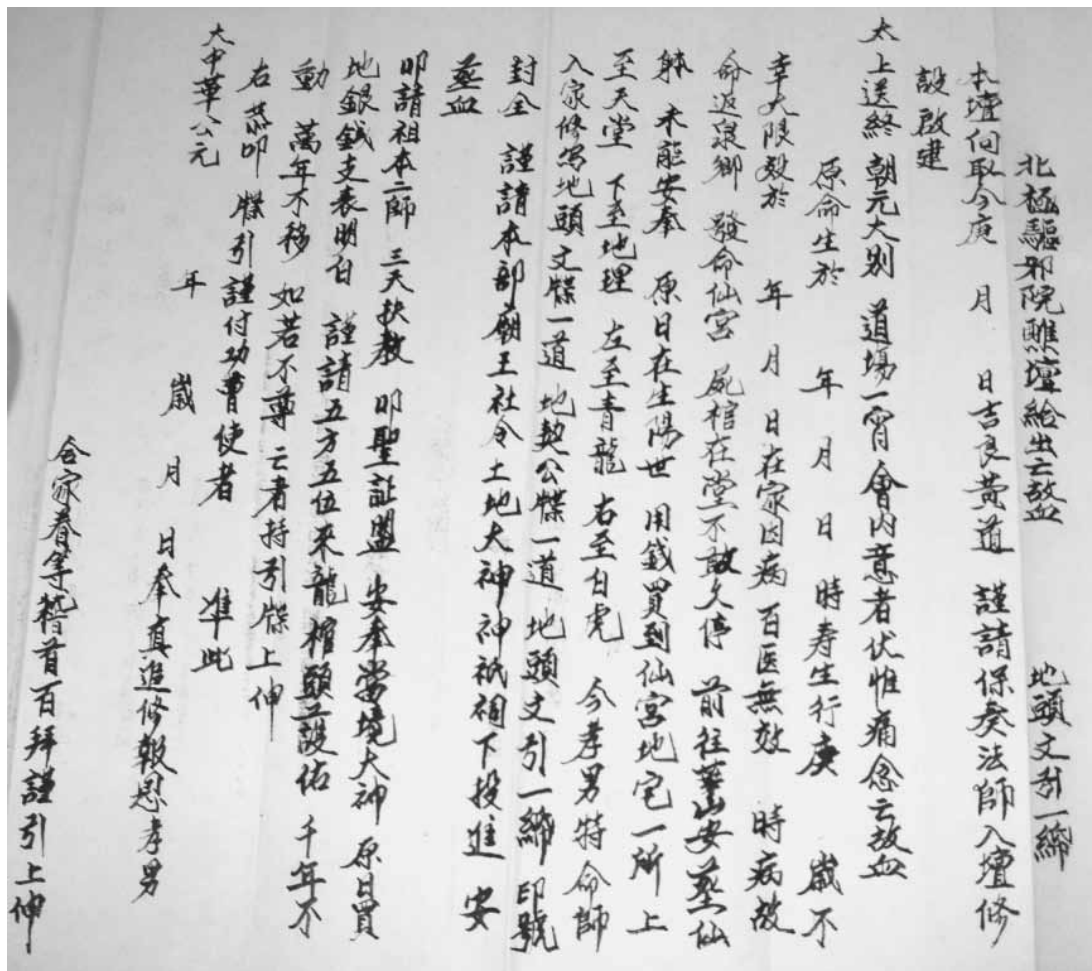 北極驅邪院醮壇給出亡故血 地頭文引一締
本壇向取今庚 月 日吉良黃道 謹請保奏法師入壇修
設啟建
太上送終 朝元大別 道場一宵 會內意者伏惟痛念亡故血
原命生於 年 月 日 時寿生行庚 歲不
幸大限殁於 年 月 日在家因病 百医無效 時病故
命返泉鄉 發命仙宮 屍棺在堂不敢久停 前往華山安塟仙
躰 未能安奉 原日在生陽世 用錢買到仙宮地宅一所 上
至天堂 下至地理 左至青龍 右至白虎 今孝男特命師
入家修寫地頭文牒一道 地契公牒一道 地頭文引一締 印號
封全 謹請本部廟王社令土地大神 神祇祠下投進 安
塟血
叩請祖本二師 三天扶教 叩聖証盟 安奉當境大神 原日買
地銀錢支表明白 謹請五方五位來龍 棺頭互護佑 千年不
動 萬年不移 如若不尊 亡者持引牒上伸
右恭叩 牒引謹付功曹使者 準此
大中華公元 年 歲 月 日奉真追修報恩孝男
合家眷等稽首百拜謹引上伸